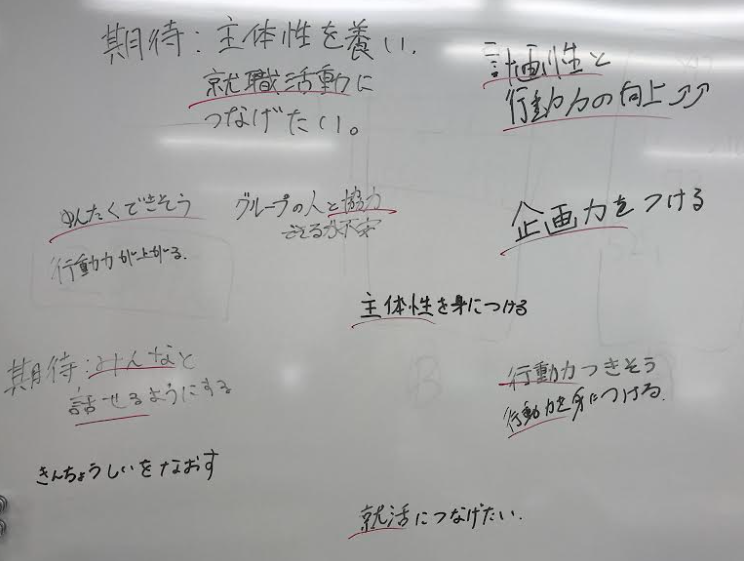 期待：主体性を養い、
就職活動に
つなげたい。
計画性と
行動力の向上↗↗
ゆんたくできそう
行動力が上がる。
グループの人と協力
できるか不安
企画力をつける
主体性を身につける
期待：みんなと
話せるようにする
行動力つきそう
行動力を身につける。
きんちょうしいをなおす
就活につなげたい。